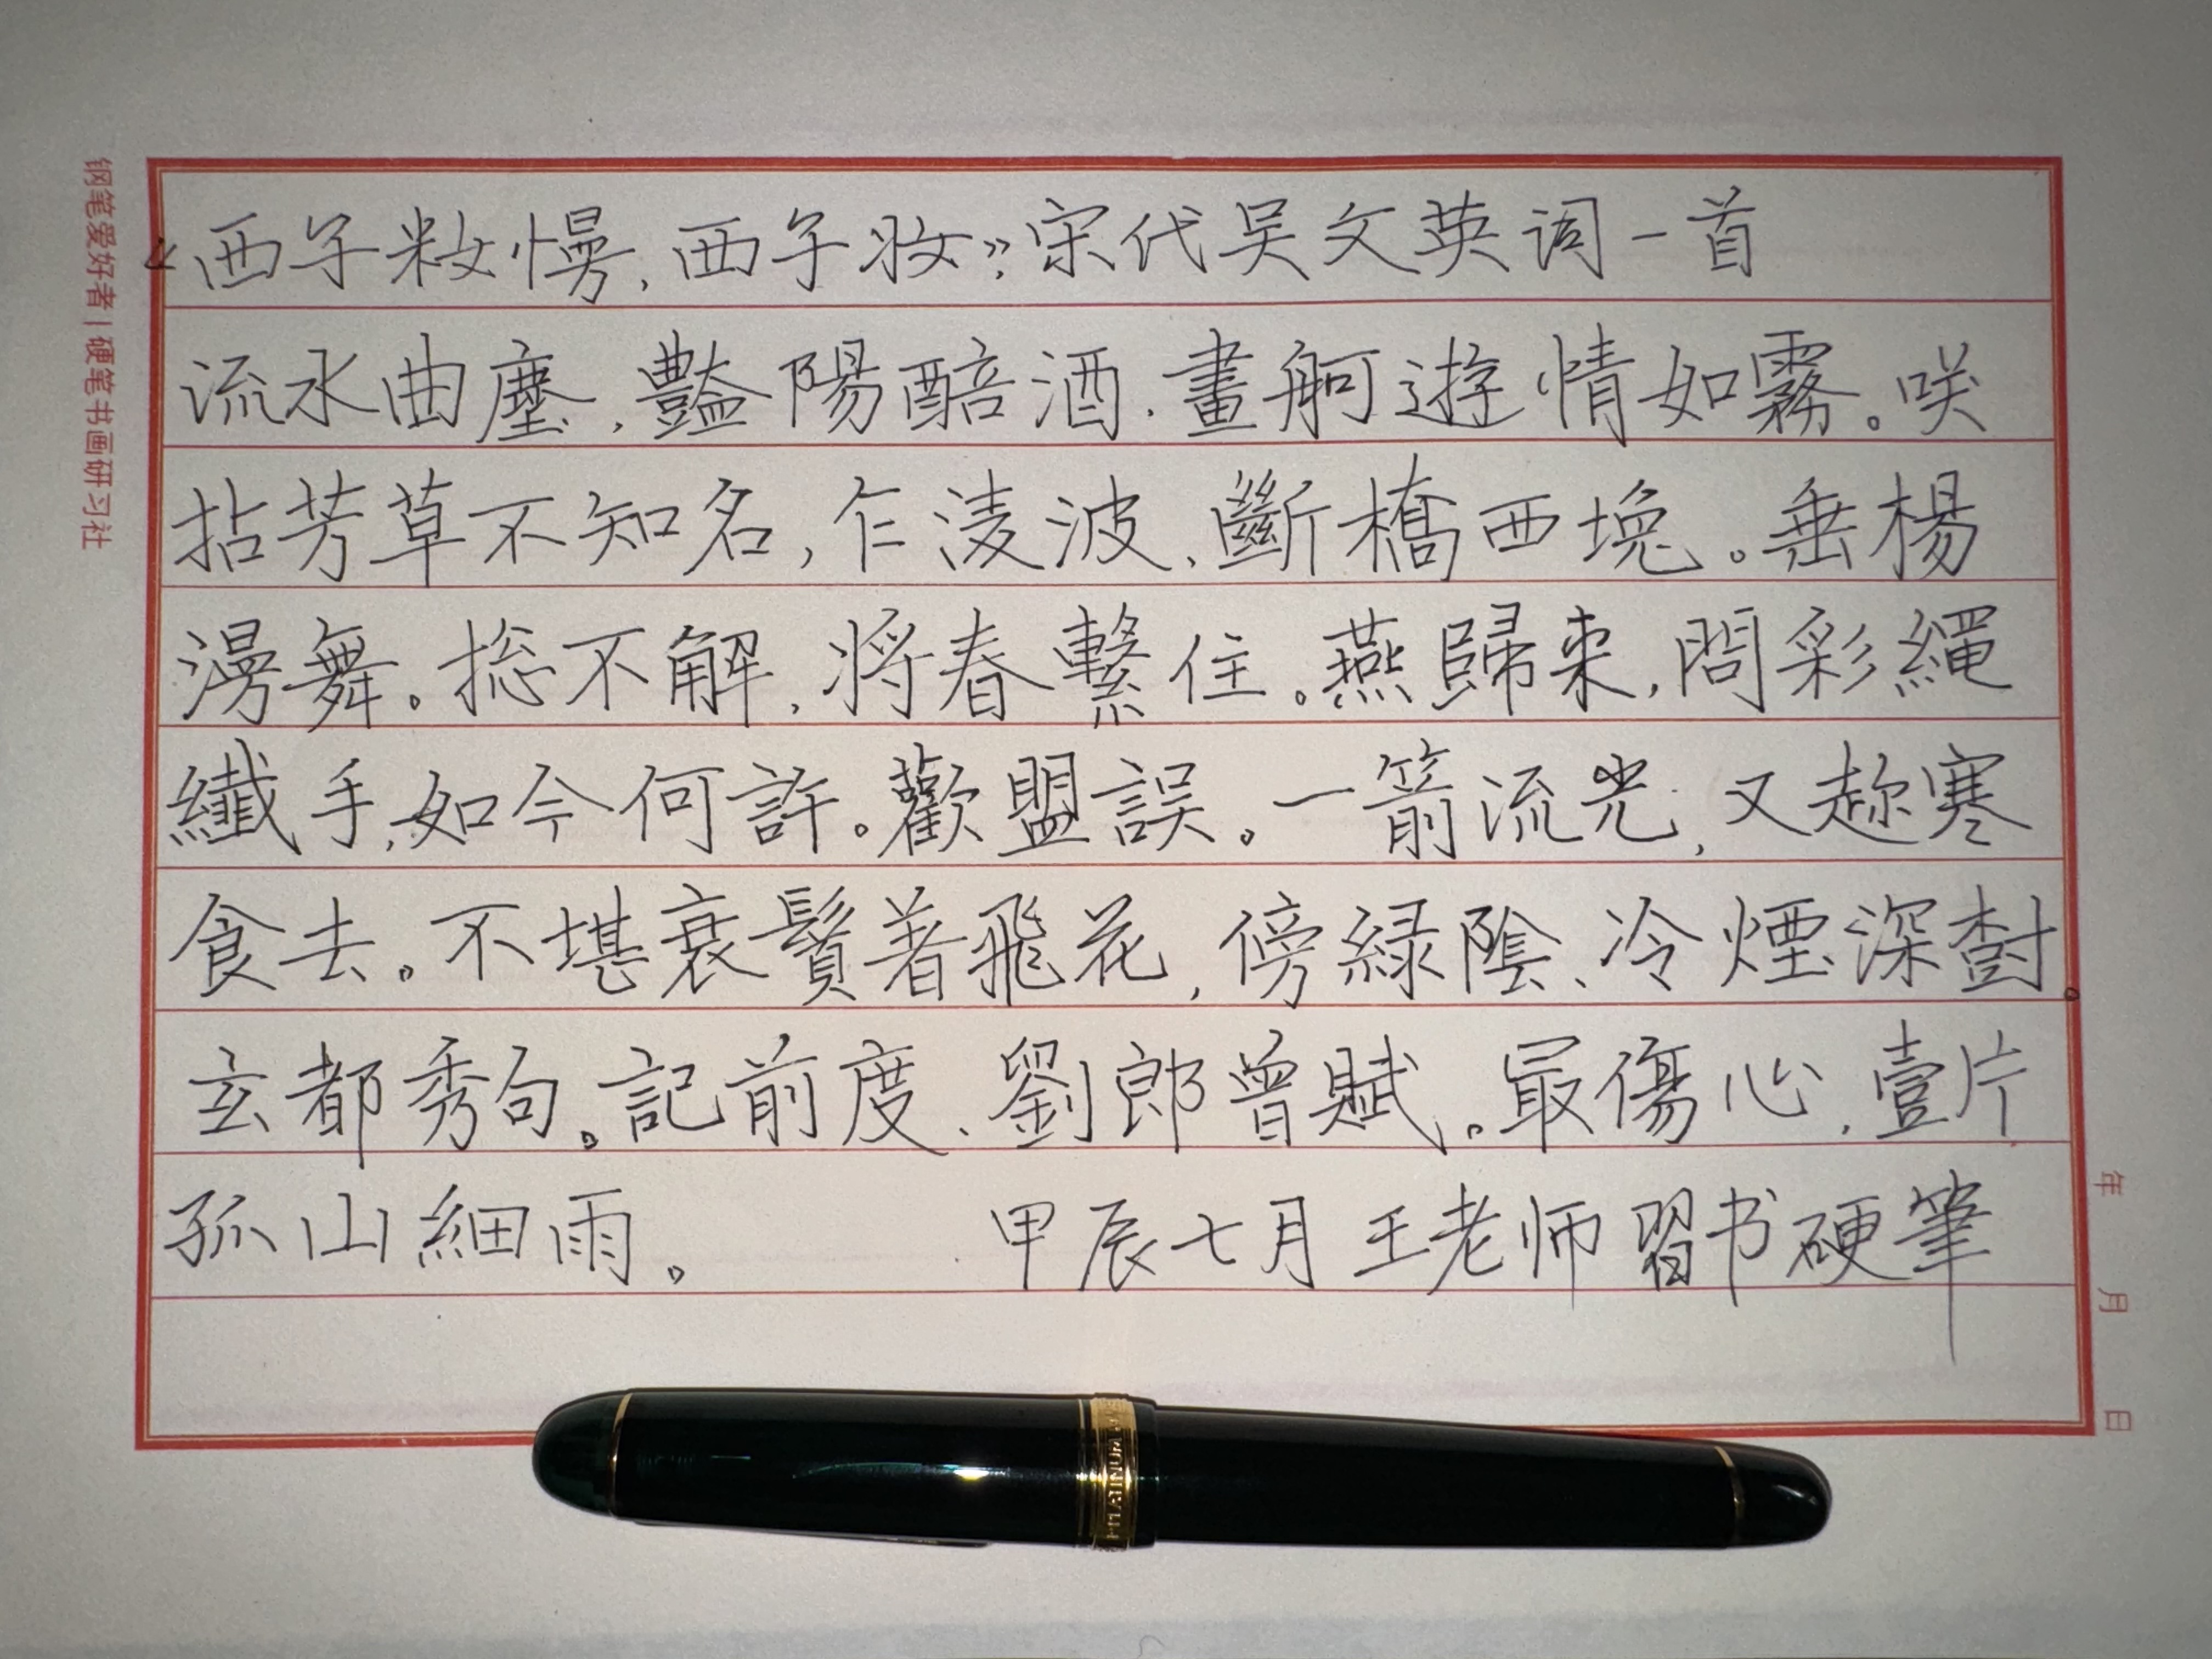 《西子妝慢，西子妝》宋代吴文英词一首
流水曲塵，豔陽醅酒，畫舸遊情如霧。咲
拈芳草不知名，乍淩波，斷橋西堍。垂楊
漫舞。捴不解，將春繫住。燕歸来，問彩繩
纖手，如今何許。歡盟誤。一箭流光，又趂寒
食去。不堪衰鬢着飛花，傍緑陰、冷煙深樹。
玄都秀句。記前度、劉郎曾賦。最傷心，壹片
孤山細雨。 甲辰七月王老师習书硬筆
钢笔爱好者|硬笔书画研习社
年 月 日
PLATINUM